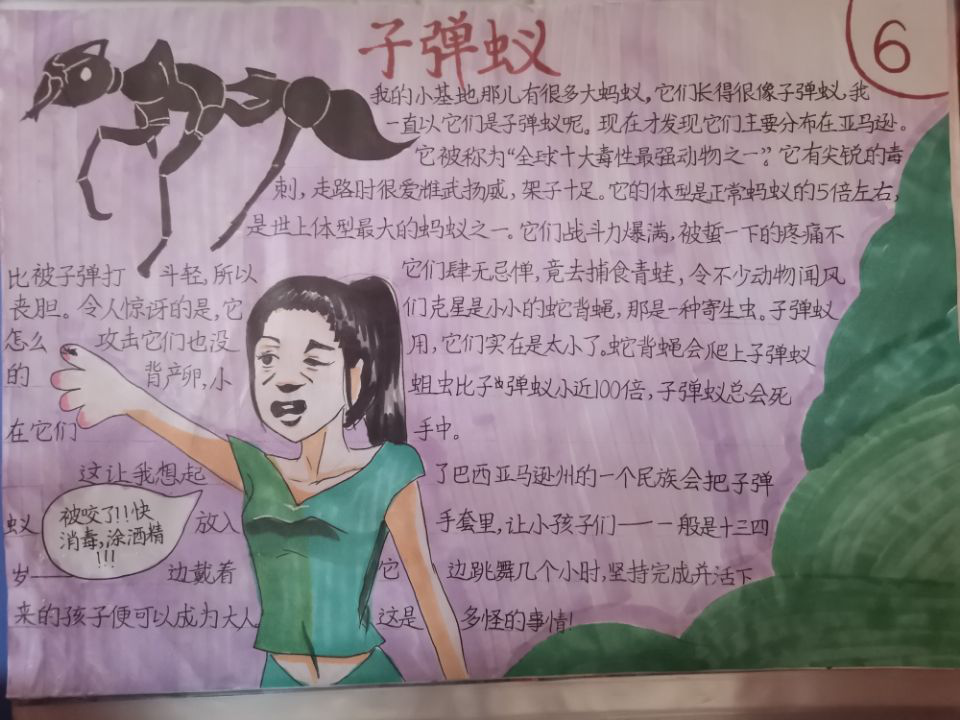 子弹蚁
6
我的小基地那儿有很多大蚂蚁，它们长得很像子弹蚁，我
一直以它们是子弹蚁呢。现在才发现它们主要分布在亚马逊。
它被称为“全球十大毒性最强动物之一”。它有尖锐的毒
刺，走路时很爱惟武扬威，架子十足。它的体型是正常蚂蚁的5倍左右，
是世上体型最大的蚂蚁之一。它们战斗力爆满，被蜇一下的疼痛不
比被子弹打 斗轻，所以 它们肆无忌惮，竟去捕食青蛙，令不少动物闻风
丧胆。令人惊讶的是，它 们克星是小小的蛇背蝇，那是一种寄生虫。子弹蚁
怎么 攻击它们也没 用，它们实在是太小了。蛇背蝇会爬上子弹蚁
的 背产卵，小 蛆虫比子弹蚁小近100倍，子弹蚁总会死
在它们 手中。
这让我想起 了巴西亚马逊州的一个民族会把子弹
蚁 放入 手套里，让小孩子们——一般是十三四
岁—— 边戴着 它 边跳舞几个小时，坚持完成并活下
来的孩子便可以成为大人 这是 多怪的事情！
被咬了！！快
消毒，涂酒精
！！！